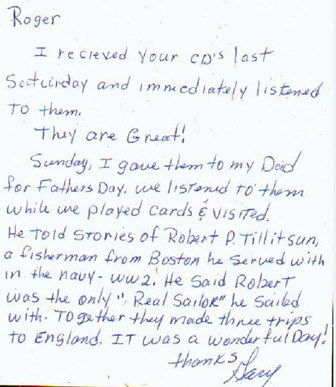 Roger
I recieved your CD's last
Saturday and immediately listened
to them.
They are Great!
Sunday, I gave them to my Dad
for Fathers Day. we listened to them
while we played cards & visited.
He told stories of Robert P. Tillitsun,
a fisherman from Boston he served with
in the navy - WW2. He said Robert
was the only "Real Sailor" he sailed
with. Together they made three trips
to England. IT was a wonderful Day!
thanks
Gary